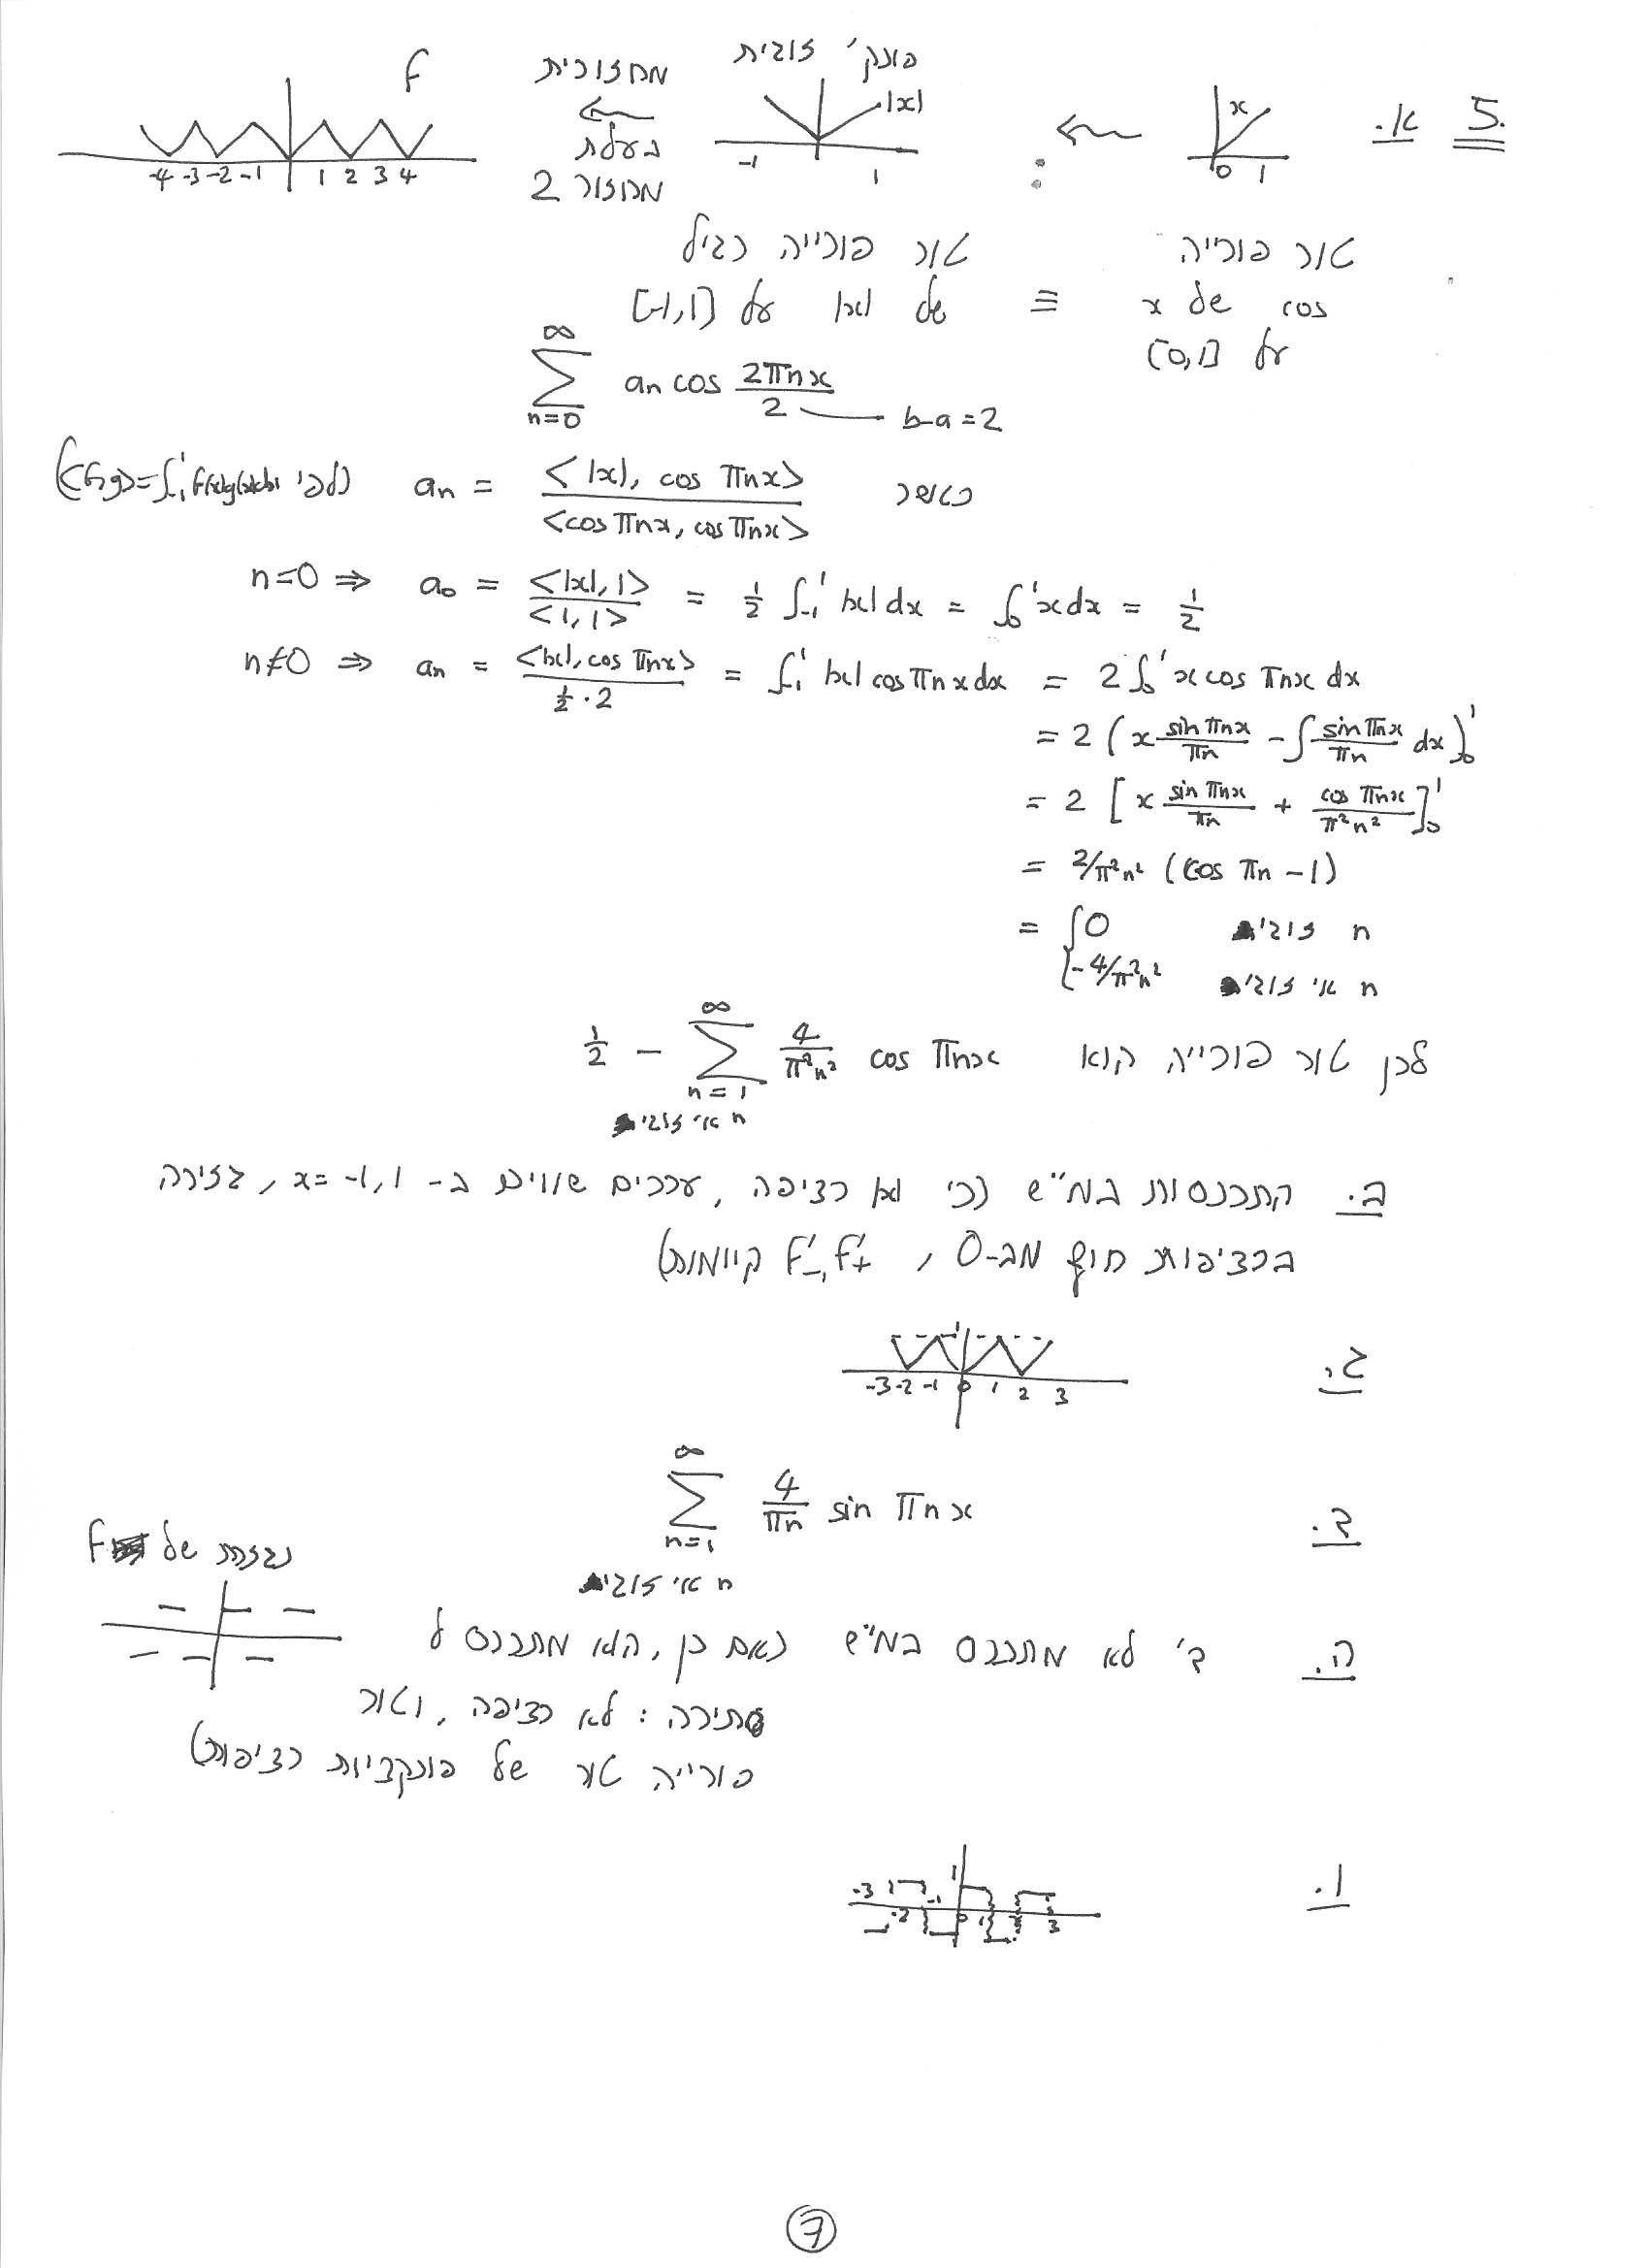 5. א.
x
0 1
פונק' זוגית
|x|
-1 1
מחזורית
בעלת
מחזור 2
f
-4 -3 -2 -1 1 2 3 4
טור פוריה
cos של x
על [0,1]
≡
טור פורייה רגיל
של |x| על [-1,1]
∞
∑ an cos 2πnx/2 — b-a=2
n=0
כאשר an = <|x|, cos πnx> / <cos πnx, cos πnx> (לפי <f,g>=∫₋₁¹ f(x)g(x)dx)
n=0 ⇒ a₀ = <|x|,1> / <1,1> = ½ ∫₋₁¹ |x| dx = ∫₀¹ x dx = ½
n≠0 ⇒ an = <|x|, cos πnx> / ½·2 = ∫₋₁¹ |x| cos πnx dx = 2 ∫₀¹ x cos πnx dx
= 2 (x sin πnx/πn - ∫ sin πnx/πn dx)₀¹
= 2 [x sin πnx/πn + cos πnx/π²n²]₀¹
= 2/π²n² (cos πn - 1)
= { 0 n זוגי
-4/π²n² n אי זוגי
לכן טור פורייה הוא ½ - ∑ 4/π²n² cos πnx
∞
n=1
n אי זוגי
ב. התכנסות במ"ש (כי |x| רציפה, ערכים שווים ב- x=-1,1, גזירה
ברציפות חוץ מב-0, f'₋, f'₊ קיימות)
ג.
1
-3 -2 -1 0 1 2 3
ד.
∞
∑ 4/πn sin πnx
n=1
n אי זוגי
ה. ד' לא מתכנס במ"ש (אם כן, הוא מתכנס ל
נגזרת של f
סתירה: לא רציפה, וטור
פורייה טור של פונקציות רציפות)
ו.
1
-3 -2 -1 0 1 3
7